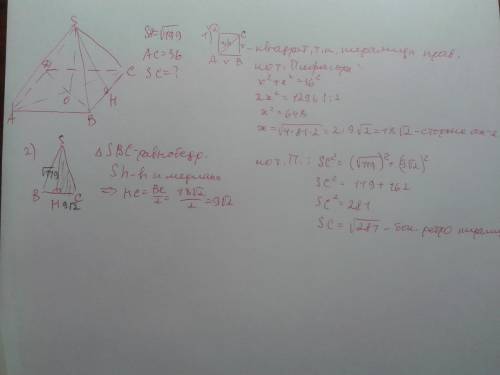 S
A
B
C
O
H
SH=√119
AC=36
SC=?
1)
36
C
A x B
- квадрат, т.к. пирамида прав.
по т. Пифагора:
x²+x²=36²
2x²=1296 |:2
x²=648
x=√4·81·2=2·9√2=18√2-
2)
S
√119
B H C
9√2
△SBC-равнобедр.
Sh-h и медиана
⇒ HC=BC/2=18√2/2=9√2
по т. П.: SC²=(√119)²+(9√2)²
SC²=119+162
SC²=281
SC=√281 - бок. ребро